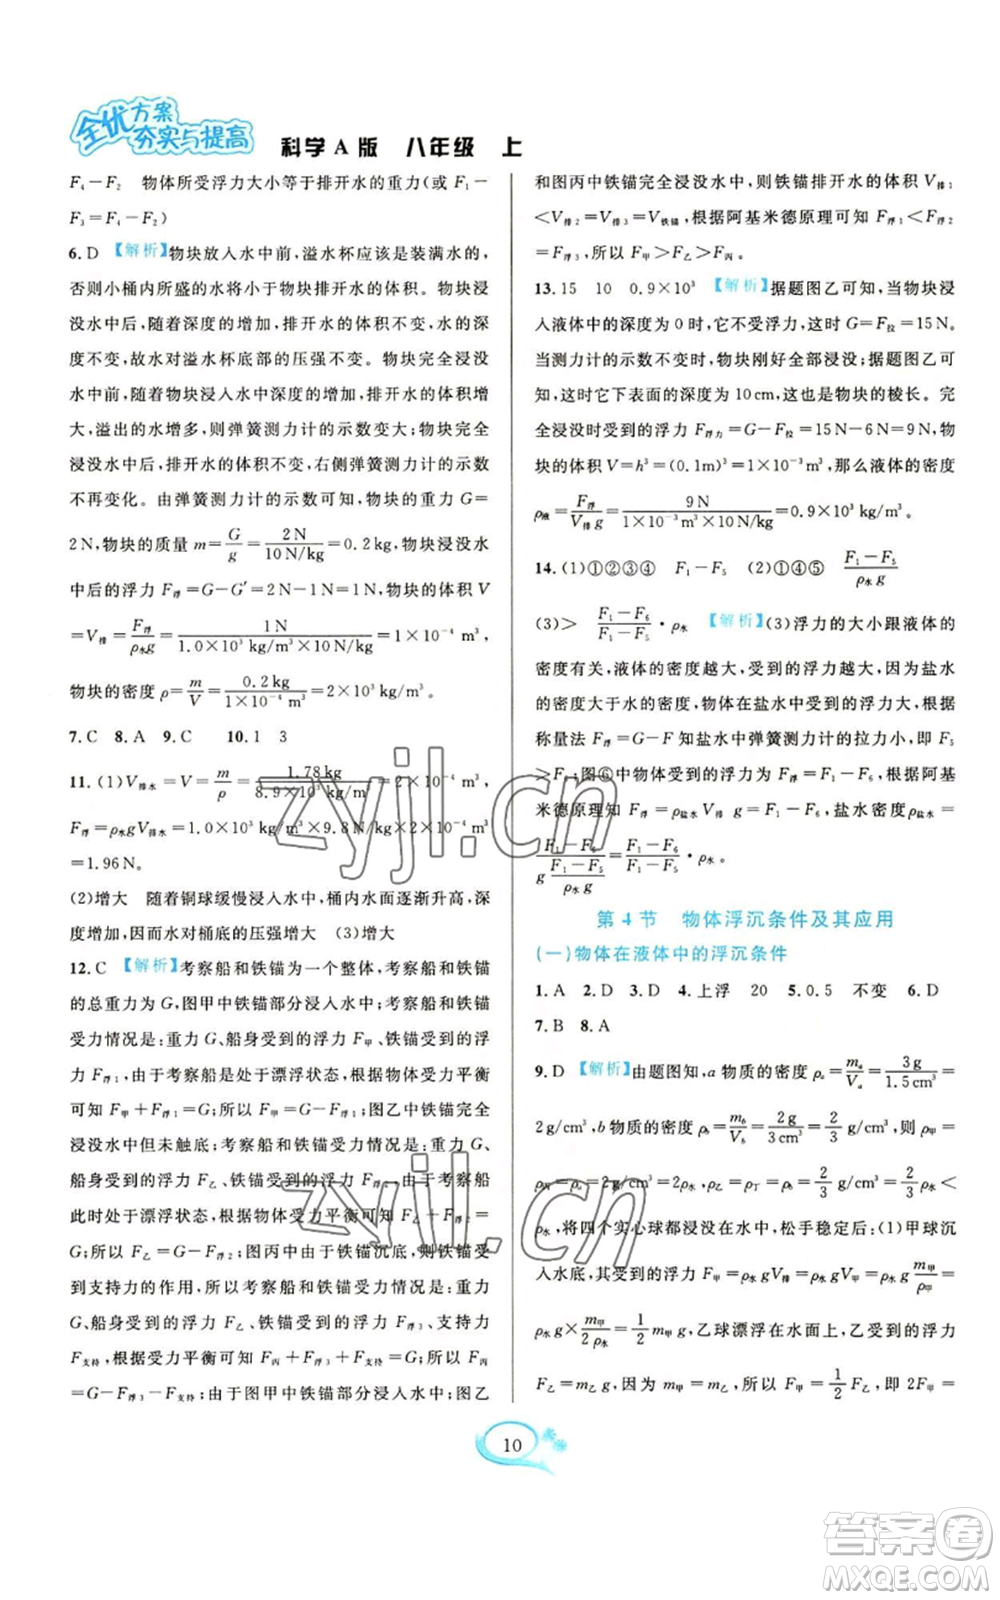 全优方案
夯实与提高
科学A版 八年级 上
F₄－F₂ 物体所受浮力大小等于排开水的重力(或 F₁－
F₃＝F₄－F₂)
6.D 【解析】物块放入水中前,溢水杯应该是装满水的,
否则小桶内所盛的水将小于物块排开水的体积。物块浸
没水中后,随着深度的增大,排开水的体积不变,水的深
度不变,故水对溢水杯底部的压强不变。物块完全浸没
水中前,随着物块浸入水中的体积增大,排开水的体积增
大,溢出的水增多,则弹簧测力计的示数变大;物块完全
浸没水中后,排开水的体积不变,右侧弹簧测力计的示数
不再变化。由弹簧测力计的示数可知,物块的重力 G＝
2N,物块的质量 m＝G/g＝2N/10N/kg＝0.2kg,物块浸没水
中后的浮力 F浮＝G－G′＝2N－1N＝1N,物块的体积 V
＝V排＝F浮/ρ水g＝1N/1.0×10³kg/m³×10N/kg＝1×10⁻⁴ m³,
物块的密度 ρ＝m/V＝0.2kg/1×10⁻⁴ m³＝2×10³kg/m³。
7.C 8.A 9.C 10.1 3
11.(1)V排水＝V＝m/ρ＝1.78kg/8.9×10³kg/m³＝2×10⁻⁴m³,
F浮＝ρ水gV排水＝1.0×10³kg/m³×9.8N/kg×2×10⁻⁴m³＝
1.96N。
(2)增大 随着铜球缓慢浸入水中,桶内水面逐渐升高,深
度增大,因而水对桶底的压强增大 (3)增大
12.C 【解析】考察船和铁锚为一个整体,考察船和铁锚
的总重力为 G,图甲中铁锚部分浸入水中,考察船和铁锚
受力情况是:重力 G、船身受到的浮力 F甲、铁锚受到的浮
力 F浮1,由于考察船是漂浮状态,根据物体受力平衡
可知 F甲＋F浮1＝G;所以 F甲＝G－F浮1;图乙中铁锚完全
浸没水中但未触底;考察船和铁锚受力情况是:重力 G、
船身受到的浮力 F乙、铁锚受到的浮力 F浮2,由于考察船
此时处于漂浮状态,根据物体受力平衡可知 F乙＋F浮2＝
G,所以 F乙＝G－F浮2;图丙中由于铁锚沉底,则铁锚受
到支持力的作用,所以考察船和铁锚受力情况是:重力
G、船身受到的浮力 F乙、铁锚受到的浮力 F浮3、支持力
F支持,根据受力平衡可知 F丙＋F浮3＋F支持＝G,所以 F丙
＝G－F浮3－F支持;由于图甲中铁锚部分浸入水中、图乙
和图丙中铁锚完全浸没水中,则铁锚排开水的体积 V排1
＜V排2＝V排3＝V铁锚,根据阿基米德原理可知 F浮1＜F浮2
＝F浮3,所以 F甲＞F乙＞F丙。
13.15 10 0.9×10³ 【解析】据题图乙可知,当物块浸
入液体中的深度为 0 时,它不受浮力,这时 G＝F拉＝15N。
当测力计的示数不变时,物块刚好全部浸没;据题图乙可
知,此时下表面的深度为 10cm,这是物块的棱长。完
全浸没时受到的浮力 F浮力＝G－F拉＝15N－6N＝9N,物
块的体积 V＝h³＝(0.1m)³＝1×10⁻³m³,那么液体的密度
ρ液＝F浮/V排g＝9N/1×10⁻³m³×10N/kg＝0.9×10³ kg/m³。
14.(1)①②③④ F₁－F₅ (2)①②⑤ F₁－F₅/ρ水g
(3)＞ F₁－F₆/F₁－F₅·ρ水 【解析】(3)浮力的大小跟液体的
密度有关,液体的密度越大,受到的浮力越大,因为盐水
的密度大于水的密度,物体在盐水中受到的浮力大,根据
称量法 F浮＝G－F 知盐水中弹簧测力计的拉力小,即 F₅
＞F₆;图⑥中物体受到的浮力 F浮＝F₁－F₆,根据阿基
米德原理知 F浮＝ρ盐水V排g＝F₁－F₆,盐水密度 ρ盐水＝
F₁－F₆/g F₁－F₅/ρ水g＝F₁－F₆/F₁－F₅·ρ水。
第 4 节 物体浮沉条件及其应用
(一)物体在液体中的浮沉条件
1.A 2.D 3.D 4.上浮 20 5.0.5 不变 6.D
7.B 8.A
9.D 【解析】由题图知,a 物质的密度 ρa＝ma/Va＝3g/1.5cm³＝
2g/cm³,b 物质的密度 ρb＝mb/Vb＝2g/3cm³＝2/3 g/cm³,则 ρ甲＝
ρ丙＝ρa＝2g/cm³＝2ρ水,ρ乙＝ρ丁＝ρb＝2/3 g/cm³＝2/3ρ水＜
ρ水,将四个实心球都浸没在水中,松手稳定后:(1)甲球沉
入水底,其受到的浮力 F甲＝ρ水gV排＝ρ水gV甲＝ρ水g m甲/ρ甲＝
ρ水g×m甲/2ρ水＝1/2m甲g,乙球漂浮在水面上,乙受到的浮力
F乙＝m乙g,因为 m甲＝m乙,所以 F甲＝1/2F乙,即 2F甲＝
10
zyjl.cn
zyjl.cn
答案圈
MXQE.COM